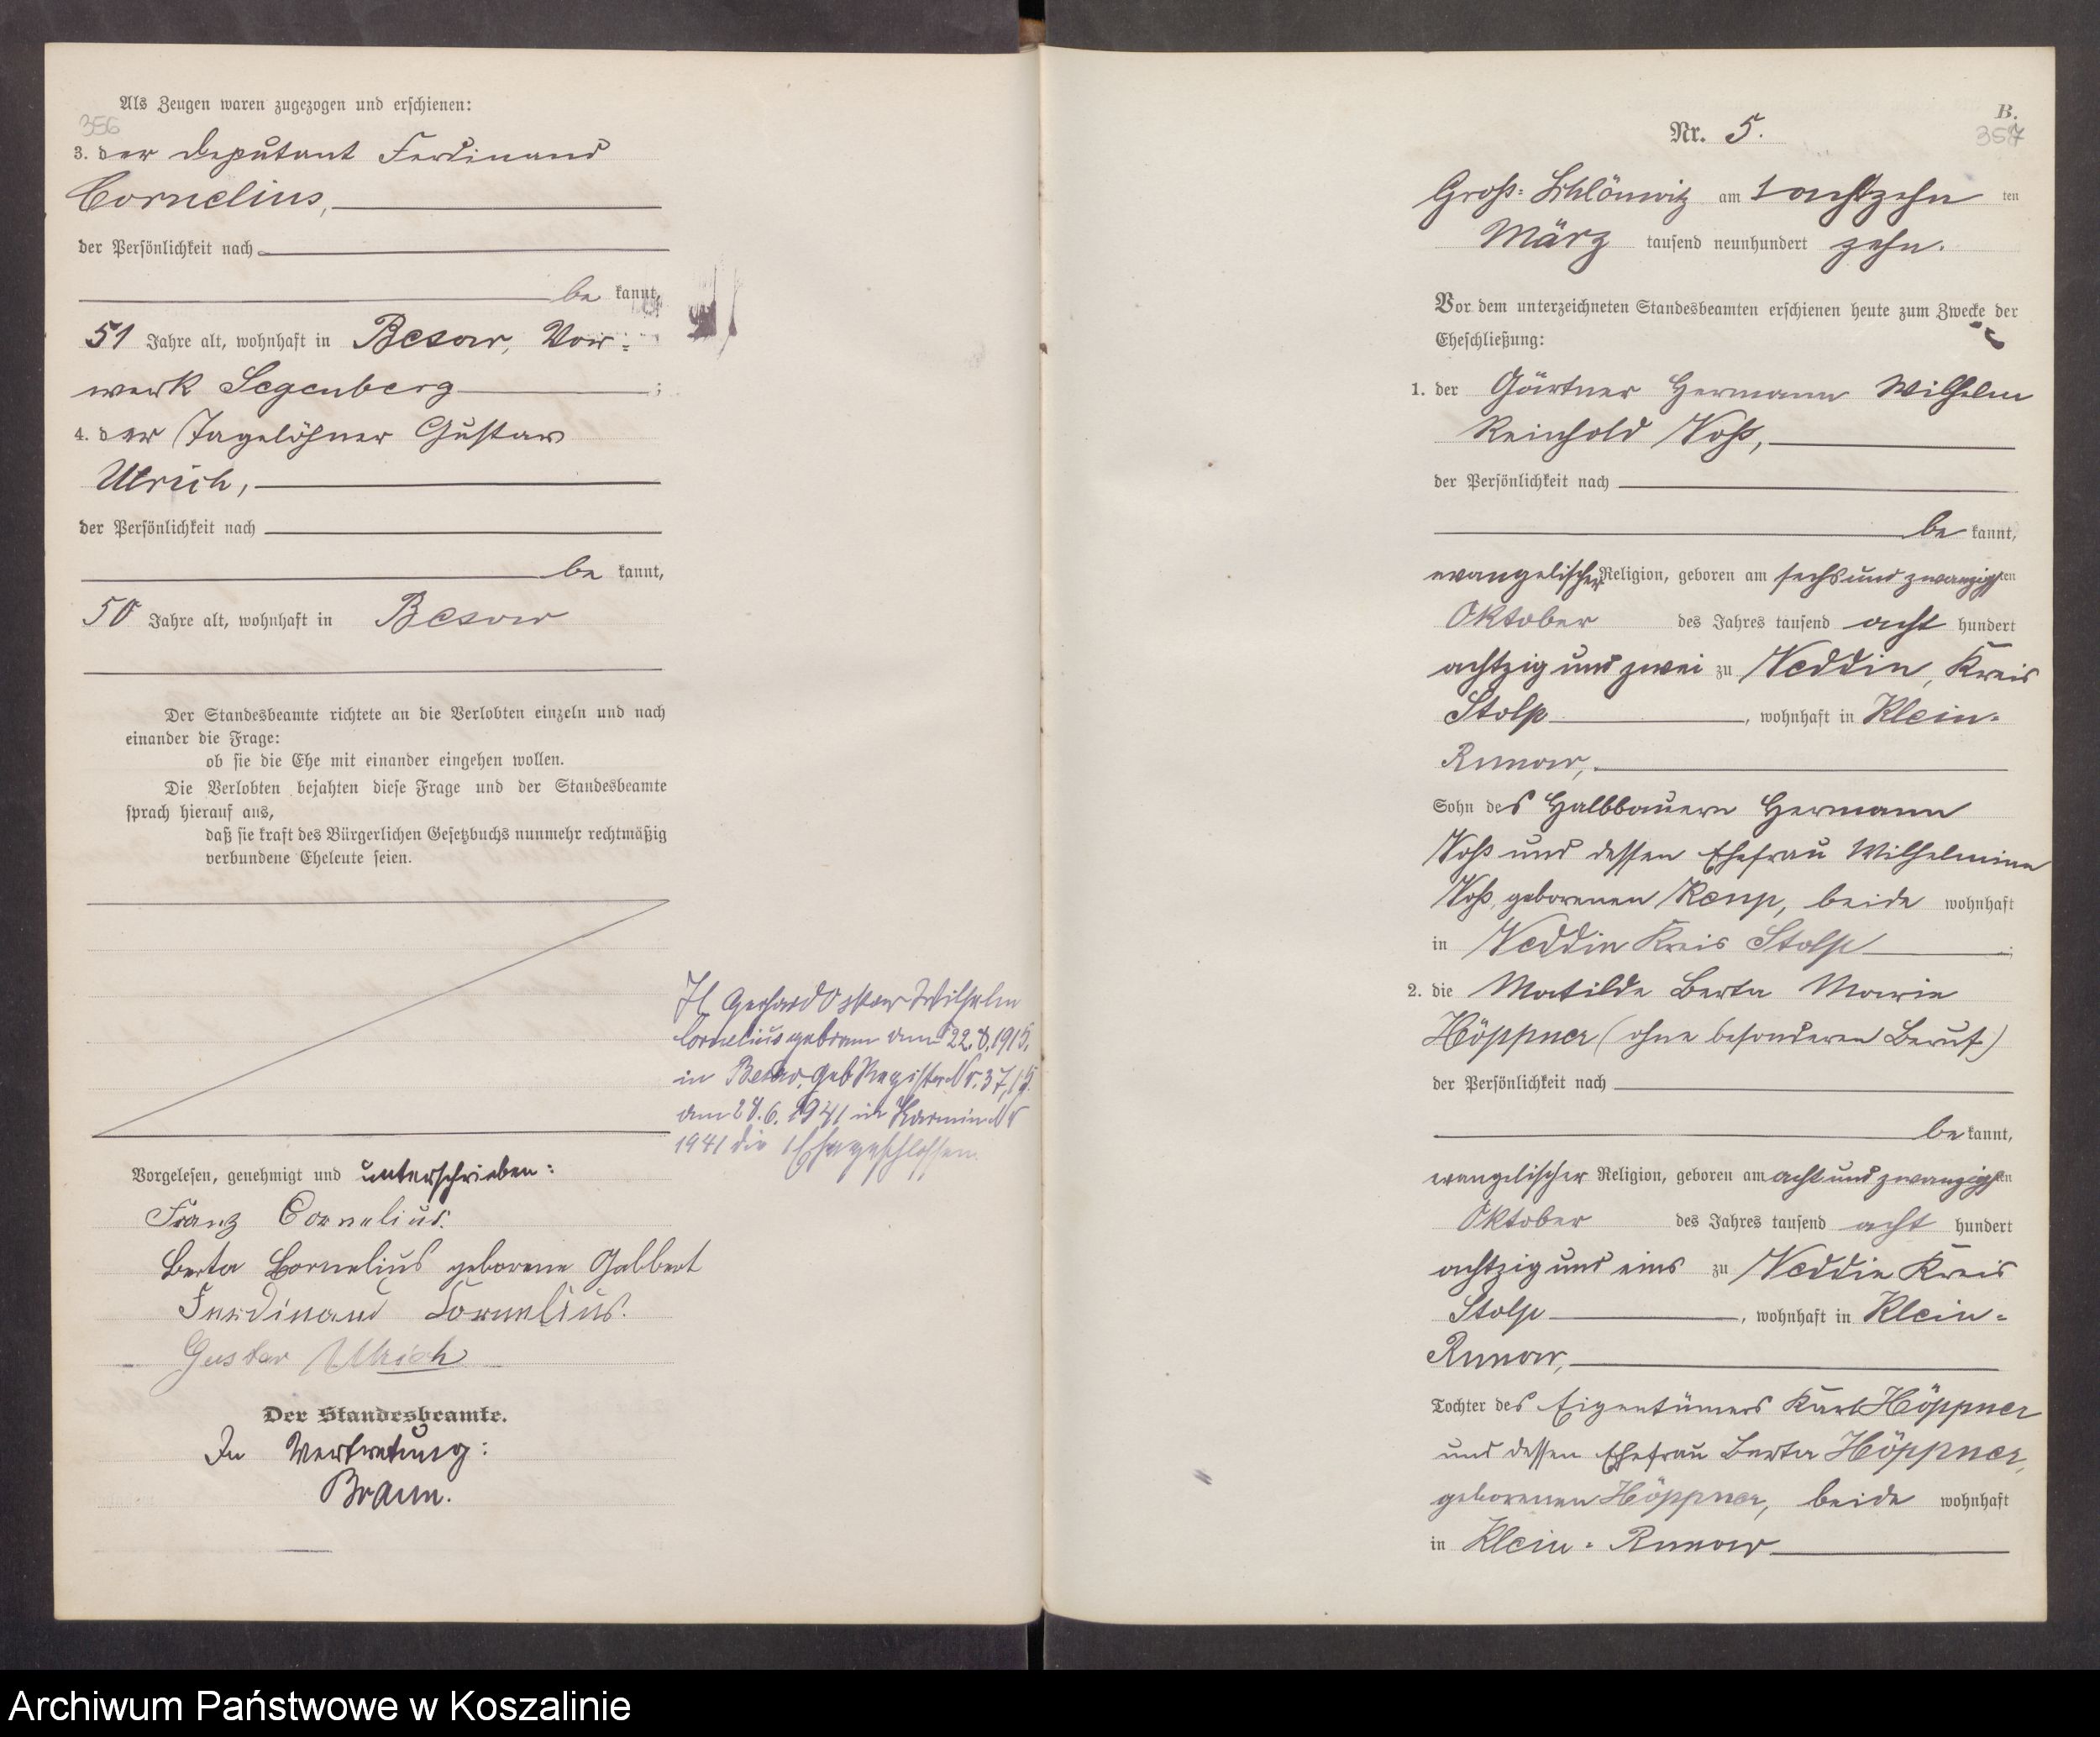 Als Zeugen waren zugezogen und erschienen:
356
3. der Deputant Ferdinand
Cornelius,
der Persönlichkeit nach
be kannt,
51 Jahre alt, wohnhaft in Besow, Vor-
werk Segenberg ;
4. der Tagelöhner Gustav
Ulrich,
der Persönlichkeit nach
be kannt,
50 Jahre alt, wohnhaft in Besow
Der Standesbeamte richtete an die Verlobten einzeln und nach
einander die Frage:
ob sie die Ehe mit einander eingehen wollen.
Die Verlobten bejahten diese Frage und der Standesbeamte
sprach hierauf aus,
daß sie kraft des Bürgerlichen Gesetzbuchs nunmehr rechtmäßig
verbundene Eheleute seien.
Gerhard Oskar Wilhelm
Cornelius geboren am 22.8.1915.
in Besow. Geb Register Nr. 37/15
am 28.6.1941 in Karwin Nr
1941 die Ehe geschlossen.
Vorgelesen, genehmigt und unterschrieben:
Franz Cornelius.
Berta Cornelius geborene Gabbert
Ferdinand Cornelius.
Gustav Ulrich
Der Standesbeamte.
In Vertretung:
Braun.
B.
357
Nr. 5.
Groß-Schlönwitz am achtzehn ten
März tausend neunhundert zehn.
Vor dem unterzeichneten Standesbeamten erschienen heute zum Zwecke der
Eheschließung:
1. der Gärtner Hermann Wilhelm
Reinhold Voß,
der Persönlichkeit nach
be kannt,
evangelischer Religion, geboren am sechsundzwanzigsten
Oktober des Jahres tausend acht hundert
achtzig und zwei zu Veddin, Kreis
Stolp , wohnhaft in Klein-
Runow,
Sohn des Halbbauern Hermann
Voß und dessen Ehefrau Wilhelmine
Voß, geborenen Kenp, beide wohnhaft
in Veddin Kreis Stolp ;
2. die Matilde Berta Marie
Höppner (ohne besonderen Beruf)
der Persönlichkeit nach
be kannt,
evangelischer Religion, geboren am achtundzwanzigsten
Oktober des Jahres tausend acht hundert
achtzig und eins zu Veddin Kreis
Stolp , wohnhaft in Klein-
Runow,
Tochter des Eigentümers Karl Höppner
und dessen Ehefrau Berta Höppner,
geborenen Höppner, beide wohnhaft
in Klein-Runow
Archiwum Państwowe w Koszalinie